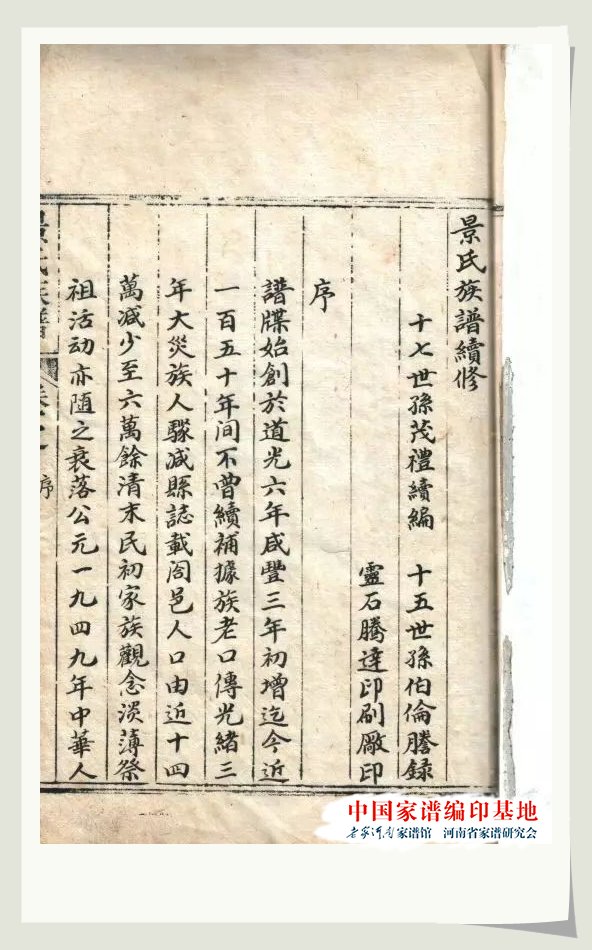 景氏族譜續修
十七世孫茂禮續編 十五世孫伯倫謄録
靈石騰達印刷廠印
序
譜牒始創於道光六年咸豐三年初增迄今近
一百五十年间不曾續補據族老口傳光緒三
年大災族人驟减縣誌載阎邑人口由近十四
萬减少至六萬餘清末民初家族觀念淡薄祭
祖活动亦随之衰落公元一九四九年中華人
景氏族譜 序
中国家谱编印基地
老家河南家谱馆 河南省家谱研究会